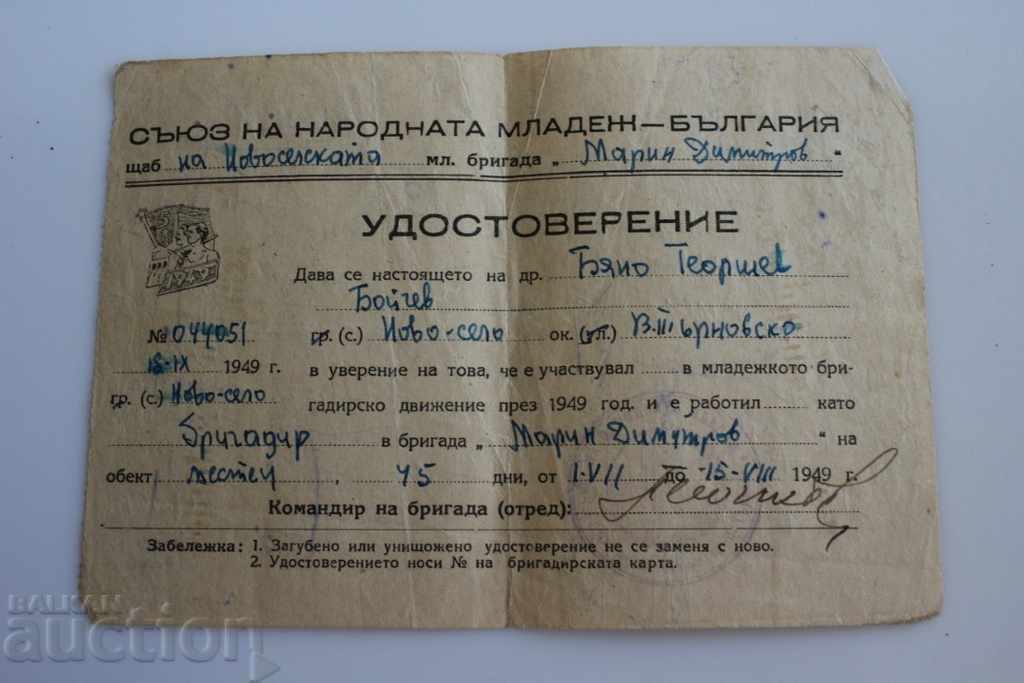 СЪЮЗ НА НАРОДНАТА МЛАДЕЖ—БЪЛГАРИЯ
щаб на Новоселската мл. бригада „Марин Димитров“
УДОСТОВЕРЕНИЕ
Дава се настоящето на др. Бяно Георгиев
Бойчев
№ 044051 гр. (с.) Ново-село ок. (ол.) В. Търновско
15-IX 1949 г. в уверение на това, че е участвувал в младежкото бри-
гр. (с.) Ново-село гадирско движение през 1949 год. и е работил като
бригадир в бригада „Марин Димитров“ на
обект местен, 45 дни, от 1-VII до 15-VIII 1949 г.
Командир на бригада (отред):
Забележка: 1. Загубено или унищожено удостоверение не се заменя с ново.
2. Удостоверението носи № на бригадирската карта.
BALKAN
auction